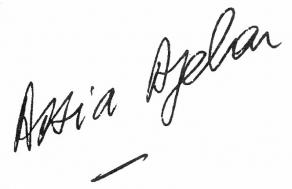 Assia Djebar